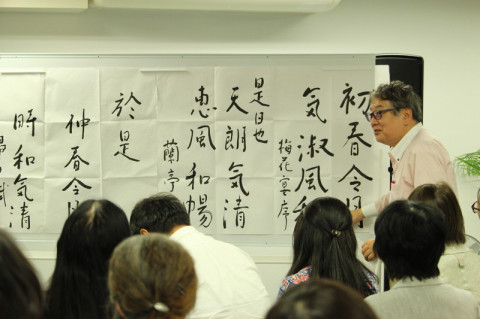 初春令月
気淑風和
梅花宴序
是日也
天朗気清
恵風和暢
蘭亭
於是
仲春令月
時和気清